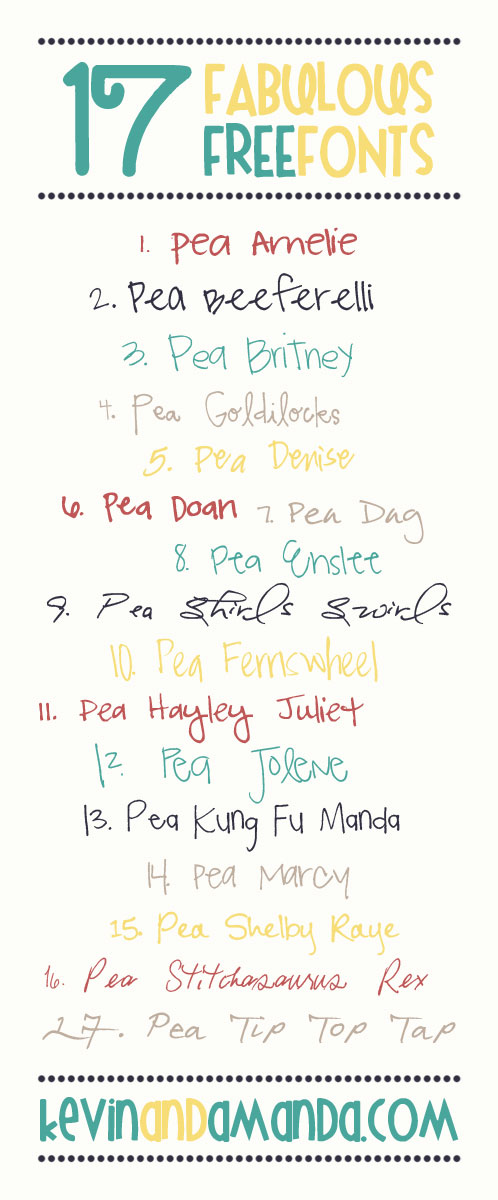 17 FABULOUS
FREEFONTS
1. Pea Amelie
2. Pea Beeferelli
3. Pea Britney
4. Pea Goldilocks
5. Pea Denise
6. Pea Doan 7. Pea Dag
8. Pea Enslee
9. Pea Shirls Swirls
10. Pea Fernswheel
11. Pea Hayley Juliet
12. Pea Jolene
13. Pea Kung Fu Manda
14. Pea Marcy
15. Pea Shelby Raye
16. Pea Stitchasaurus Rex
17. Pea Tip Top Tap
kevinandamanda.com